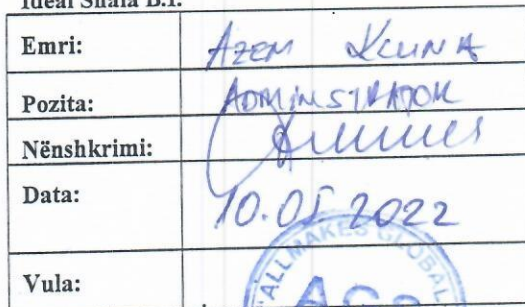 Ideal Shala B.I.
Emri: AZEM
Pozita: ADMINSTRATOR
Nënshkrimi:
Data: 10.05.2022
Vula:
ALLMAKES GLOBAL